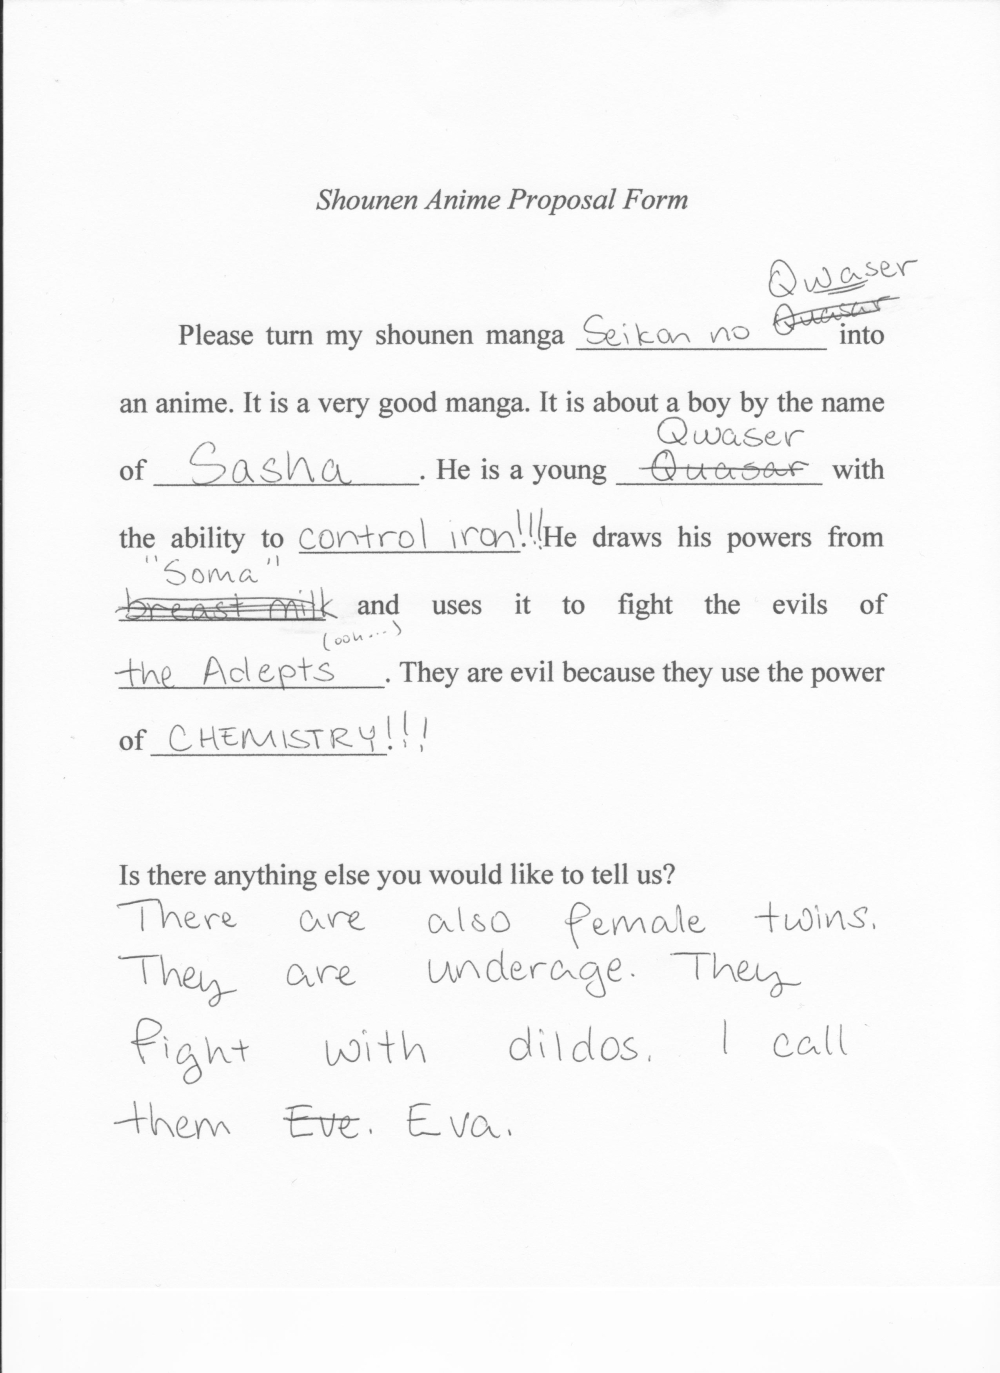 Shounen Anime Proposal Form
Qwaser
Please turn my shounen manga Seikon no Quasar into
an anime. It is a very good manga. It is about a boy by the name
Qwaser
of Sasha. He is a young Quasar with
the ability to control iron!!! He draws his powers from
"Soma"
breast milk and uses it to fight the evils of
(ooh...)
the Adepts. They are evil because they use the power
of CHEMISTRY!!!
Is there anything else you would like to tell us?
There are also female twins.
They are underage. They
fight with dildos. I call
them Eve. Eva.